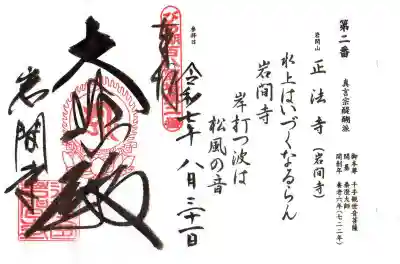 第二番
真言宗醍醐派
岩間山
正法寺（岩間寺）
御本尊 千手観世音菩薩
開基 泰澄大師
開創年 養老六年（七二二年）
水上はいづくなるらん
岩間寺
岸打つ波は
松風の音
参拝日
令和七年八月三十一日
奉拝
大悲殿
岩間寺